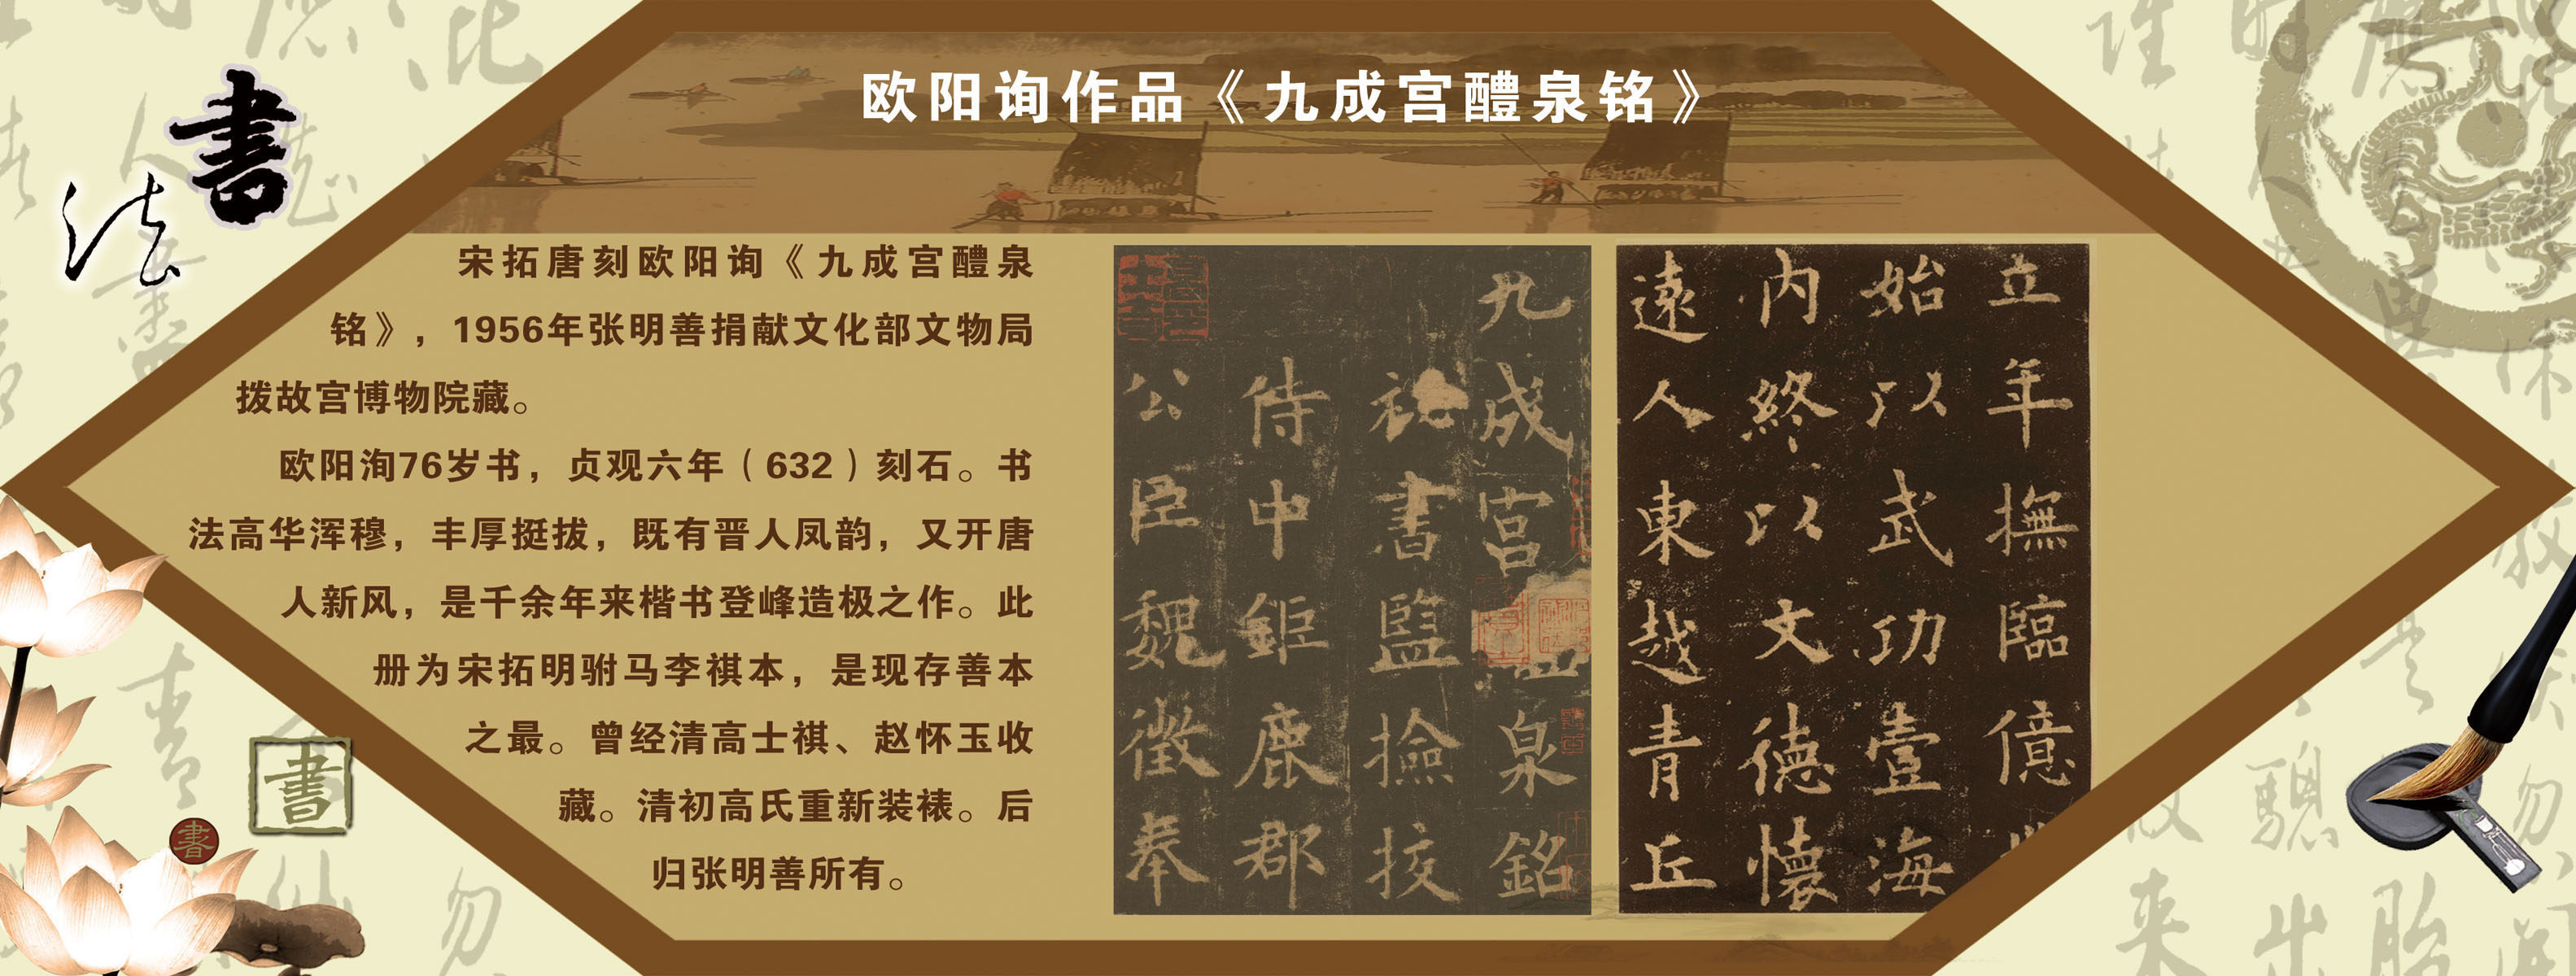 書
法
欧阳询作品《九成宫醴泉铭》
宋拓唐刻欧阳询《九成宫醴泉
铭》，1956年张明善捐献文化部文物局
拨故宫博物院藏。
欧阳洵76岁书，贞观六年（632）刻石。书
法高华浑穆，丰厚挺拔，既有晋人凤韵，又开唐
人新风，是千余年来楷书登峰造极之作。此
册为宋拓明驸马李祺本，是现存善本
之最。曾经清高士祺、赵怀玉收
藏。清初高氏重新装裱。后
归张明善所有。
九成宫
泉銘
書監撿挍
侍中鉅鹿郡
公臣魏徵奉
立年撫臨億
始以武功壹海
内終以文德懷
遠人東越青丘
書
書